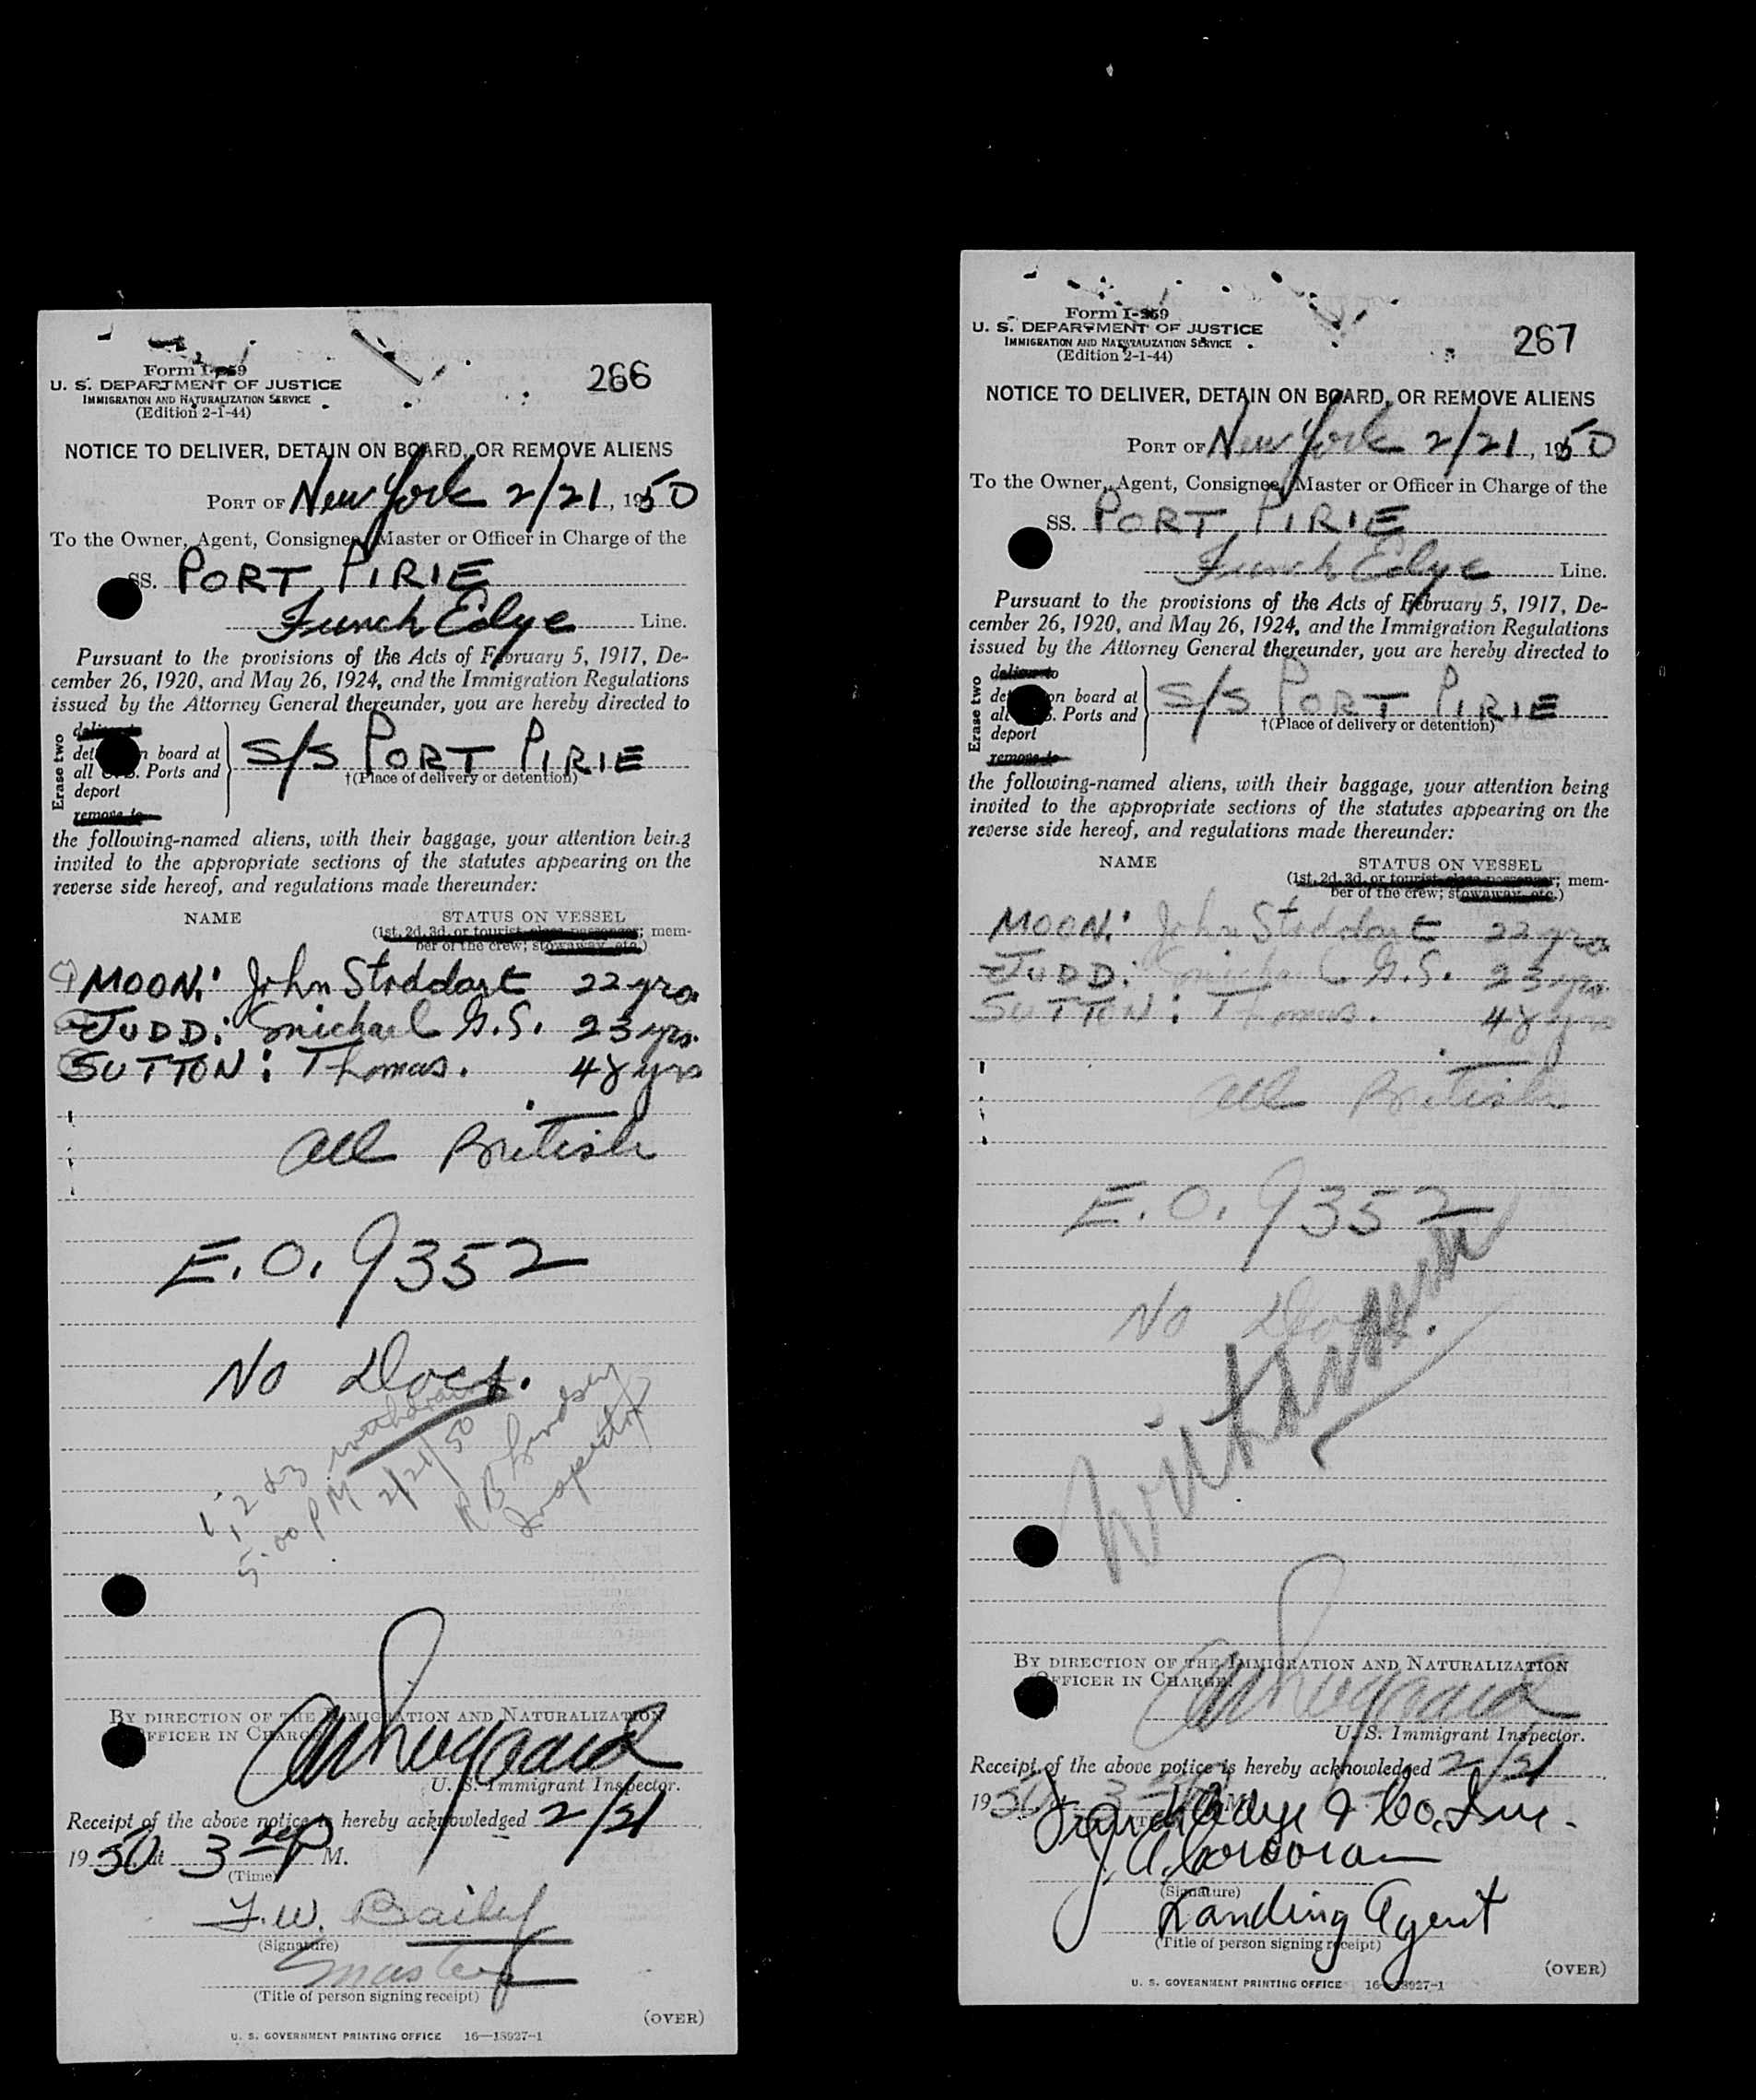 Form I-259
U. S. DEPARTMENT OF JUSTICE
IMMIGRATION AND NATURALIZATION SERVICE
(Edition 2-1-44)
266
NOTICE TO DELIVER, DETAIN ON BOARD, OR REMOVE ALIENS
PORT OF New York 2/21, 1950
To the Owner, Agent, Consignee, Master or Officer in Charge of the
SS. PORT PIRIE
Funch Edye Line.
Pursuant to the provisions of the Acts of February 5, 1917, De-
cember 26, 1920, and May 26, 1924, and the Immigration Regulations
issued by the Attorney General thereunder, you are hereby directed to
Erase two
deliver to
detain on board at
all U.S. Ports and
deport
remove to
S/S PORT PIRIE
†(Place of delivery or detention)
the following-named aliens, with their baggage, your attention being
invited to the appropriate sections of the statutes appearing on the
reverse side hereof, and regulations made thereunder:
NAME STATUS ON VESSEL
(1st, 2d, 3d, or tourist class passenger; mem-
ber of the crew; stowaway, etc.)
MOON: John Stoddart 22 yrs
JUDD: Michael G.S. 23 yrs.
SUTTON: Thomas. 48 yrs
All British
E.O. 9352
No Docs.
1, 2 withdrawn
5:00 PM 2/21/50
R B Lindsey
Inspector
BY DIRECTION OF THE IMMIGRATION AND NATURALIZATION
OFFICER IN CHARGE
U. S. Immigrant Inspector.
Receipt of the above notice is hereby acknowledged 2/21
1950, at 3 P M.
(Time)
F.W. Bailey
(Signature)
Master
(Title of person signing receipt)
(OVER)
U. S. GOVERNMENT PRINTING OFFICE 16—18927-1
Form I-259
U. S. DEPARTMENT OF JUSTICE
IMMIGRATION AND NATURALIZATION SERVICE
(Edition 2-1-44)
267
NOTICE TO DELIVER, DETAIN ON BOARD, OR REMOVE ALIENS
PORT OF New York 2/21, 1950
To the Owner, Agent, Consignee, Master or Officer in Charge of the
SS. PORT PIRIE
Funch Edye Line.
Pursuant to the provisions of the Acts of February 5, 1917, De-
cember 26, 1920, and May 26, 1924, and the Immigration Regulations
issued by the Attorney General thereunder, you are hereby directed to
Erase two
deliver to
detain on board at
all U.S. Ports and
deport
remove to
S/S PORT PIRIE
†(Place of delivery or detention)
the following-named aliens, with their baggage, your attention being
invited to the appropriate sections of the statutes appearing on the
reverse side hereof, and regulations made thereunder:
NAME STATUS ON VESSEL
(1st, 2d, 3d, or tourist class passenger; mem-
ber of the crew; stowaway, etc.)
MOON: John Stoddart 22 yrs
JUDD: Michael G.S. 23 yrs.
SUTTON: Thomas. 48 yrs
All British
E.O. 9352
No Docs.
Withdrawn
BY DIRECTION OF THE IMMIGRATION AND NATURALIZATION
OFFICER IN CHARGE
U. S. Immigrant Inspector.
Receipt of the above notice is hereby acknowledged 2/21
1950, at 3 M.
Funch Edye & Co. Inc.
J. A. Corcoran
(Signature)
Landing Agent
(Title of person signing receipt)
(OVER)
U. S. GOVERNMENT PRINTING OFFICE 16—18927-1